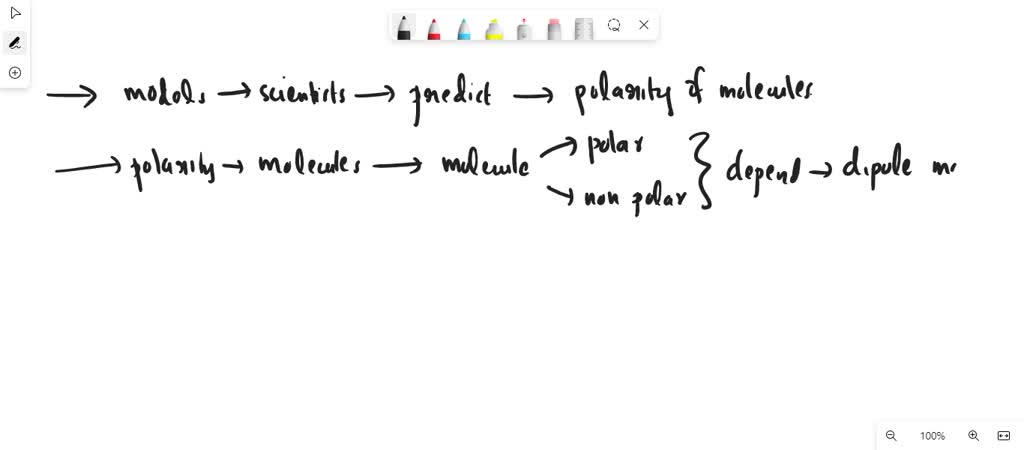 → models → scientists → predict → polarity of molecules
→ polarity → molecules → molecule → polar
→ non polar } depend → dipole mo
100%